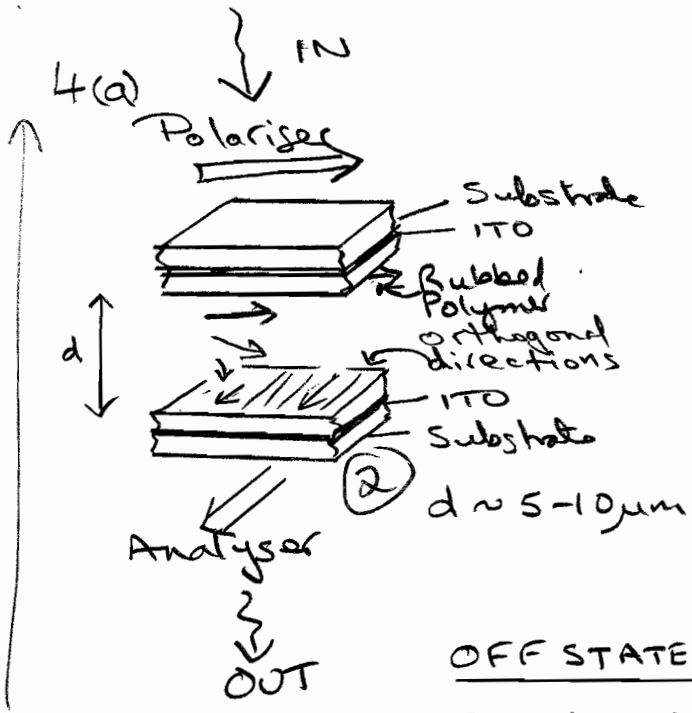 IN
4(a)
Polariser
Substrate
ITO
Rubbed
Polymer
orthogonal
directions
d
ITO
Substrate
2
d ~ 5-10μm
Analyser
OUT
OFF STATE